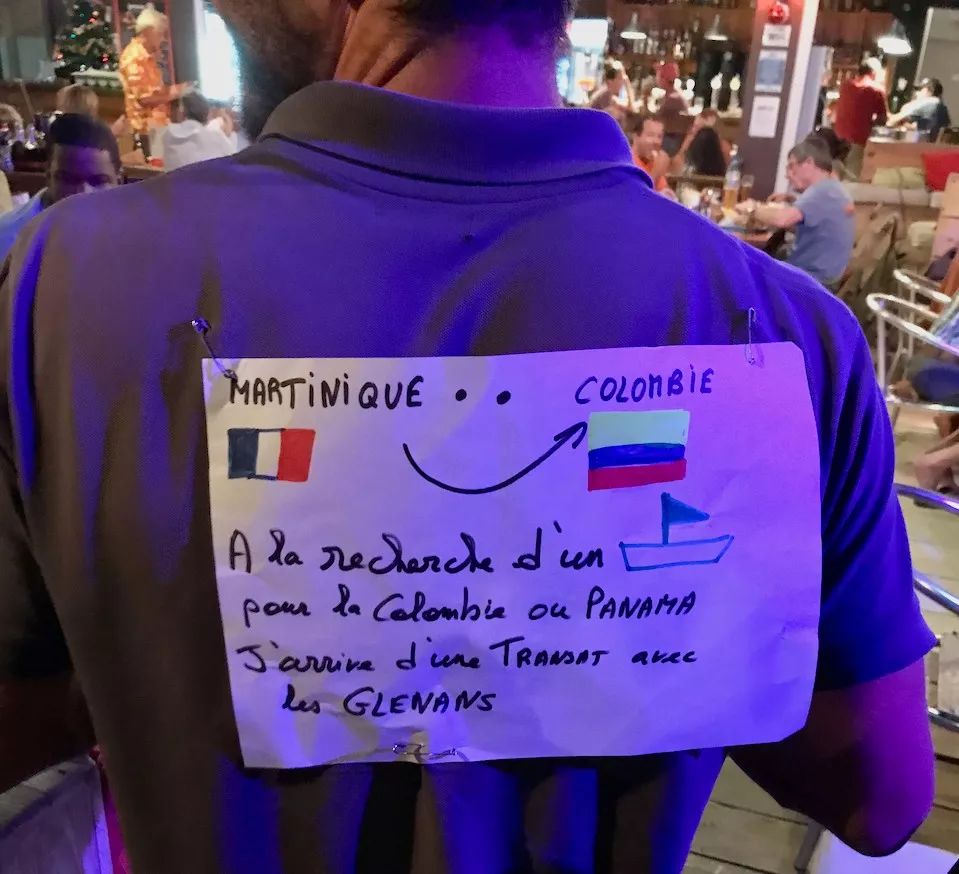 MARTINIQUE COLOMBIE
A la recherche d'un
pour la Colombie ou PANAMA
J'arrive d'une TRANSAT avec
les GLENANS